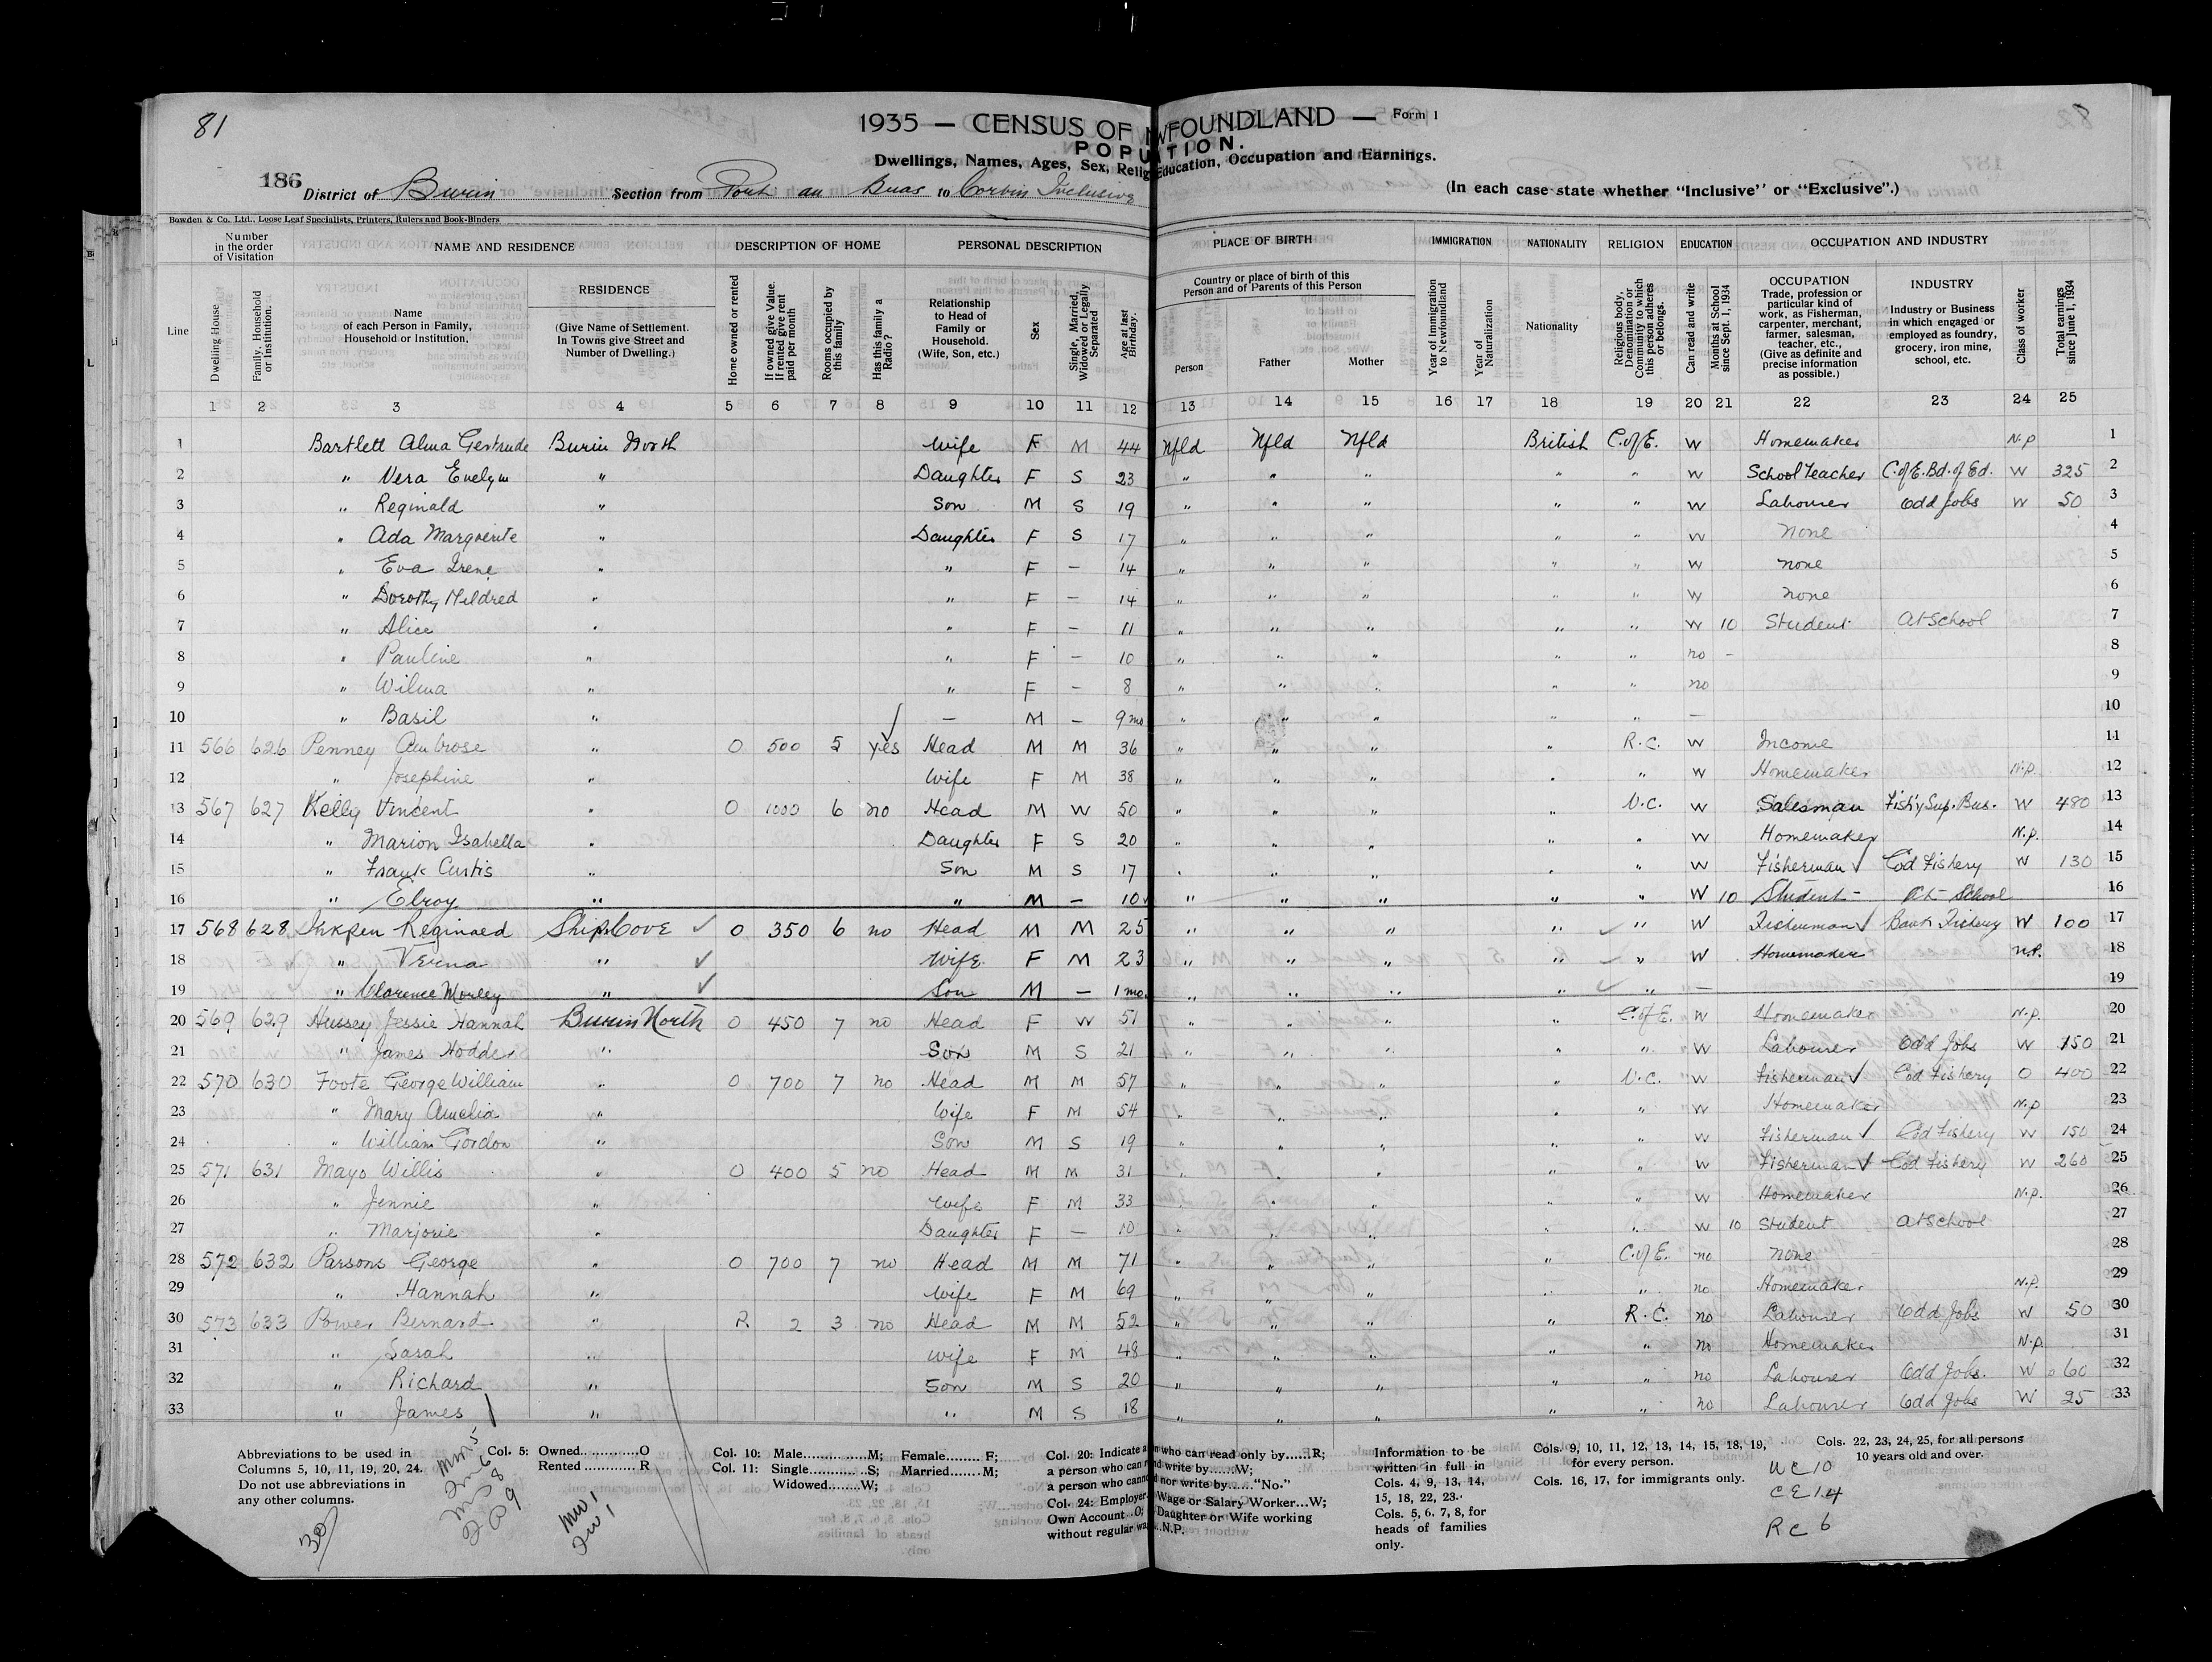 81
1935 — CENSUS OF NEWFOUNDLAND — Form 1
POPULATION.
Dwellings, Names, Ages, Sex, Relig Education, Occupation and Earnings.
186 District of Burin Section from Port au Bras to Corbin Inclusive (In each case state whether "Inclusive" or "Exclusive".)
Bowden & Co. Ltd., Loose Leaf Specialists, Printers, Rulers and Book-Binders
Number in the order of Visitation NAME AND RESIDENCE DESCRIPTION OF HOME PERSONAL DESCRIPTION PLACE OF BIRTH IMMIGRATION NATIONALITY RELIGION EDUCATION OCCUPATION AND INDUSTRY
Line Dwelling House Family, Household or Institution. Name of each Person in Family, Household or Institution. RESIDENCE (Give Name of Settlement. In Towns give Street and Number of Dwelling.) Home owned or rented If owned give Value. If rented give rent paid per month Rooms occupied by this family Has this family a Radio? Relationship to Head of Family or Household. (Wife, Son, etc.) Sex Single, Married, Widowed or Legally Separated Age at last Birthday. Country or place of birth of this Person and of Parents of this Person Person Father Mother Year of Immigration to Newfoundland Year of Naturalization Nationality Religious body, Denomination or Community to which this person adheres or belongs. Can read and write Months at School since Sept. 1, 1934 OCCUPATION Trade, profession or particular kind of work, as Fisherman, carpenter, merchant, farmer, salesman, teacher, etc., (Give as definite and precise information as possible.) INDUSTRY Industry or Business in which engaged or employed as foundry, grocery, iron mine, school, etc. Class of worker Total earnings since June 1, 1934
1 2 3 4 5 6 7 8 9 10 11 12 13 14 15 16 17 18 19 20 21 22 23 24 25
1 Bartlett Alma Gertrude Burin North Wife F M 44 Nfld Nfld Nfld British C.of E. W Homemaker N.P 1
2 " Vera Evelyn " Daughter F S 23 " " " " " W School Teacher C.of E. Bd. of Ed. W 325 2
3 " Reginald " Son M S 19 " " " " " W Labourer Odd Jobs W 50 3
4 " Ada Marguerite " Daughter F S 17 " " " " " W None 4
5 " Eva Irene " " F — 14 " " " " " W none 5
6 " Dorothy Mildred " " F — 14 " " " " " W none 6
7 " Alice " " F — 11 " " " " " W 10 Student At School 7
8 " Pauline " " F — 10 " " " " " no - 8
9 " Wilma " " F — 8 " " " " " no 9
10 " Basil " — M — 9 mo " " " " " — 10
11 566 626 Penney Ambrose " O 500 5 yes Head M M 36 " " " " R.C. W Income 11
12 " Josephine " Wife F M 38 " " " " " W Homemaker N.P. 12
13 567 627 Kelly Vincent " O 1000 6 no Head M W 50 " " " " U.C. W Salesman Fish'y Sup. Bus. W 480 13
14 " Marion Isabella " Daughter F S 20 " " " " " W Homemaker N.P. 14
15 " Frank Curtis " Son M S 17 " " " " " W Fisherman ✓ Cod Fishery W 130 15
16 " Elroy " " M — 10 " " " " " W 10 Student - At School 16
17 568 628 Inkpen Reginaed Ship Cove ✓ O 350 6 no Head M M 25 " " " " ✓ " W Fisherman ✓ Bank Fishery W 100 17
18 " Verna " ✓ Wife F M 23 " " " " ✓ " W Homemaker N.P. 18
19 " Clarence Morley " ✓ Son M — 1 mo. " " " " ✓ " — 19
20 569 629 Hussey Jessie Hannah Burin North O 450 7 no Head F W 51 " " " " C.of E. W Homemaker N.P. 20
21 " James Hodder " Son M S 21 " " " " " W Labourer Odd Jobs W 150 21
22 570 630 Foote George William " O 700 7 no Head M M 57 " " " " U.C. W Fisherman ✓ Cod Fishery O 400 22
23 " Mary Amelia " Wife F M 54 " " " " " W Homemaker N.P 23
24 " William Gordon " Son M S 19 " " " " " W Fisherman ✓ Cod Fishery W 150 24
25 571 631 Mayo Willis " O 400 5 no Head M M 31 " " " " " W Fisherman ✓ Cod Fishery W 260 25
26 " Jennie " Wife F M 33 " " " " " W Homemaker N.P. 26
27 " Marjorie " Daughter F — 10 " " " " " W 10 Student At School 27
28 572 632 Parsons George " O 700 7 no Head M M 71 " " " " C.of E. no none 28
29 " Hannah " Wife F M 69 " " " " " no Homemaker N.P. 29
30 573 633 Power Bernard " R 2 3 no Head M M 52 " " " " R.C. no Labourer Odd Jobs W 50 30
31 " Sarah " Wife F M 48 " " " " " no Homemaker N.P. 31
32 " Richard " Son M S 20 " " " " " no Labourer Odd Jobs. W 60 32
33 " James " " M S 18 " " " " " no Labourer Odd Jobs W 25 33
Abbreviations to be used in Columns 5, 10, 11, 19, 20, 24. Do not use abbreviations in any other columns.
Col. 5: Owned.............O
Rented............R
Col. 10: Male...............M; Female........F;
Col. 11: Single............S; Married........M;
Widowed........W;
Col. 20: Indicate a n who can read only by......R;
a person who can r nd write by......W;
a person who canno d nor write by......"No."
Col. 24: Employer Wage or Salary Worker...W;
Own Account..O; Daughter or Wife working
without regular wa ...N.P.
Information to be written in full in Cols. 4, 9, 13, 14, 15, 18, 22, 23.
Cols. 5, 6, 7, 8, for heads of families only.
Cols. 9, 10, 11, 12, 13, 14, 15, 18, 19, for every person.
Cols. 16, 17, for immigrants only.
Cols. 22, 23, 24, 25, for all persons 10 years old and over.
UC 10
CE 14
RC 6
30
mm 5
fm 6
ms 8
mw 1
fw 1